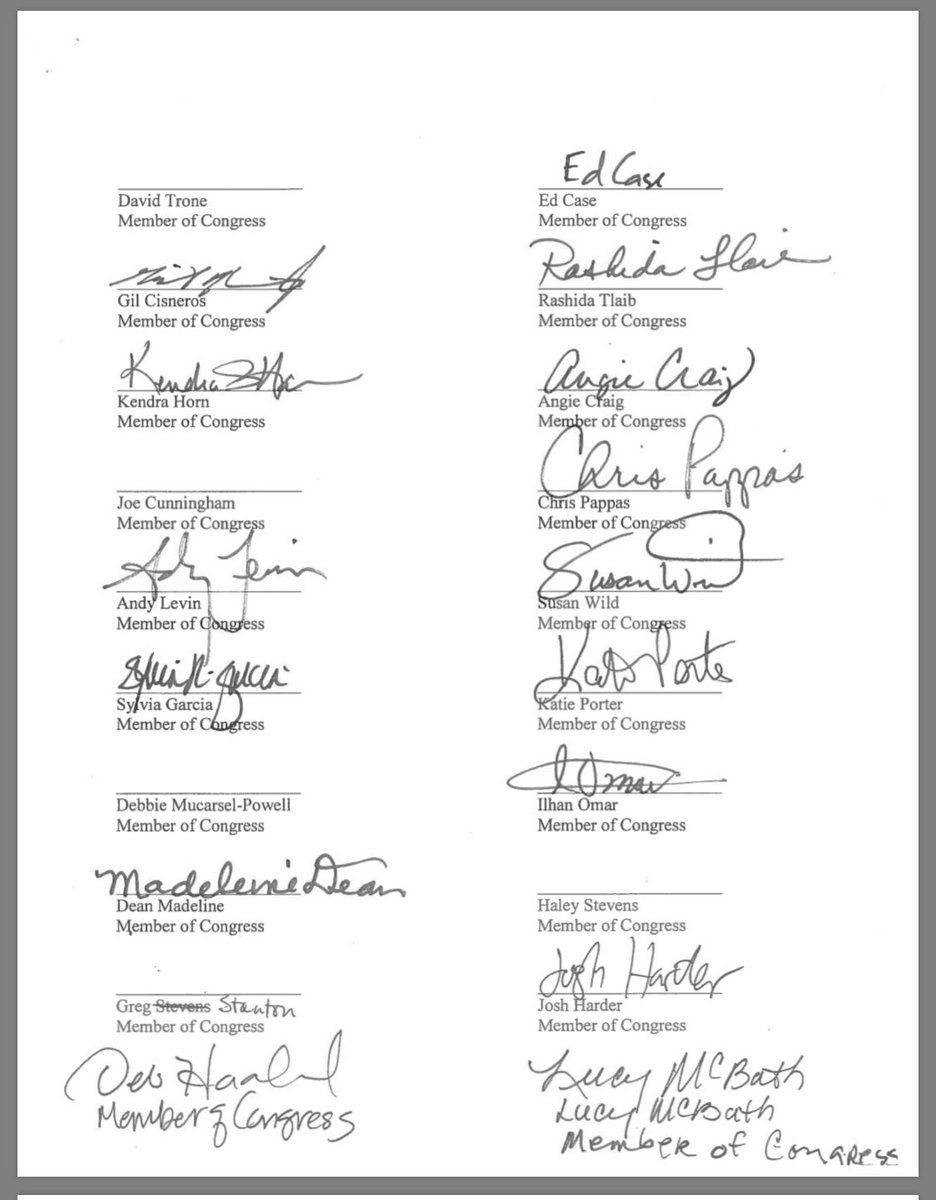 David Trone
Member of Congress
Ed Case
Ed Case
Member of Congress
Gil Cisneros
Member of Congress
Rashida Tlaib
Rashida Tlaib
Member of Congress
Kendra Horn
Kendra Horn
Member of Congress
Angie Craig
Angie Craig
Member of Congress
Joe Cunningham
Member of Congress
Chris Pappas
Chris Pappas
Member of Congress
Andy Levin
Andy Levin
Member of Congress
Susan Wild
Susan Wild
Member of Congress
Sylvia Garcia
Member of Congress
Katie Porter
Katie Porter
Member of Congress
Debbie Mucarsel-Powell
Member of Congress
I Omar
Ilhan Omar
Member of Congress
Madeleine Dean
Dean Madeline
Member of Congress
Haley Stevens
Member of Congress
Greg Stevens Stanton
Member of Congress
Josh Harder
Josh Harder
Member of Congress
Deb Haaland
Member of Congress
Lucy McBath
Lucy McBath
Member of Congress